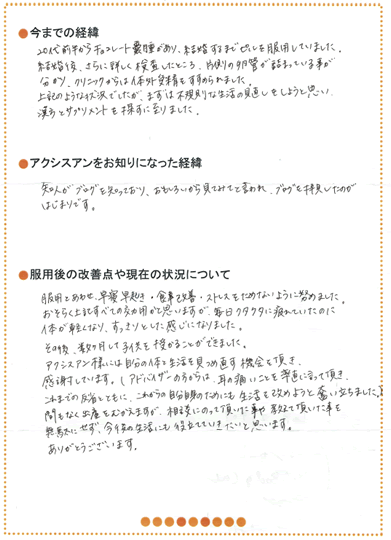 ●今までの経緯
20代前半からチョコレート嚢腫があり、結婚するまでピルを服用していました。
結婚後、さらに詳しく検査したところ、片側の卵管が詰まっている事が
分かり、クリニックからは体外受精をすすめられました。
上記のような状況でしたが、まずは不規則な生活の見直しをしようと思い、
漢方とサプリメントを探すに至りました。
●アクシスアンをお知りになった経緯
知人がブログを知っており、おもしろいから見てみてと言われ、ブログを拝見したのが
はじまりです。
●服用後の改善点や現在の状況について
服用とあわせ、早寝早起き・食事改善・ストレスをためないように努めました。
おそらく上記すべての効用かと思いますが、毎日クタクタに疲れていたのに
体が軽くなり、すっきりとした感じになりました。
その後、数ヶ月して子供を授かることができました。
アクシスアン様には自分の体と生活を見つめ直す機会を頂き、
感謝しています。(アドバイザーの方からは、耳の痛いことを率直に言って頂き、
これまでの反省とともに、これからの自分自身のためにも生活を改めようと奮い立ちました。)
間もなく出産をむかえますが、相談にのって頂いた事や教えて頂いた事を
無駄にせず、今後の生活にも役立てていきたいと思います。
ありがとうございます。